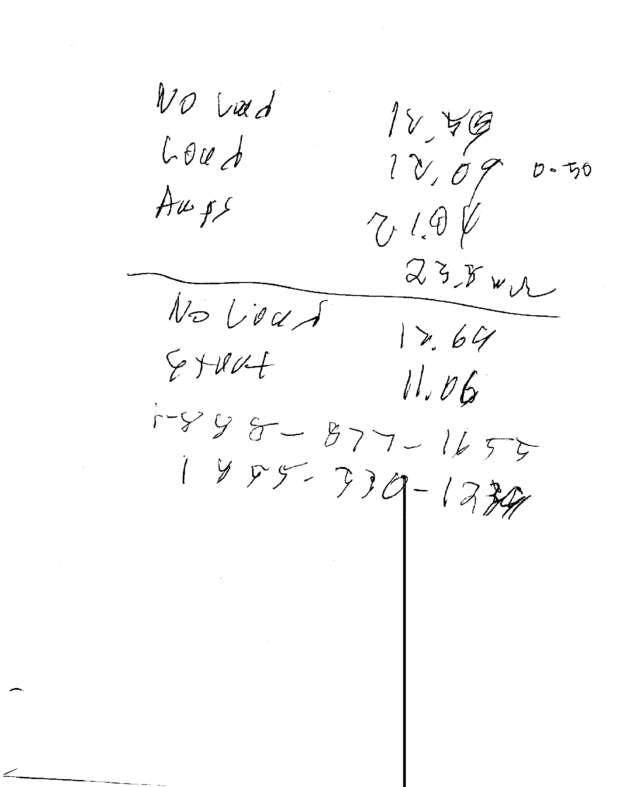 No Load 12.59
Load 12.09 0.50
Amps 21.04
23.5
No Load 12.64
Start 11.06
1-888-877-1655
1 855-330-1234